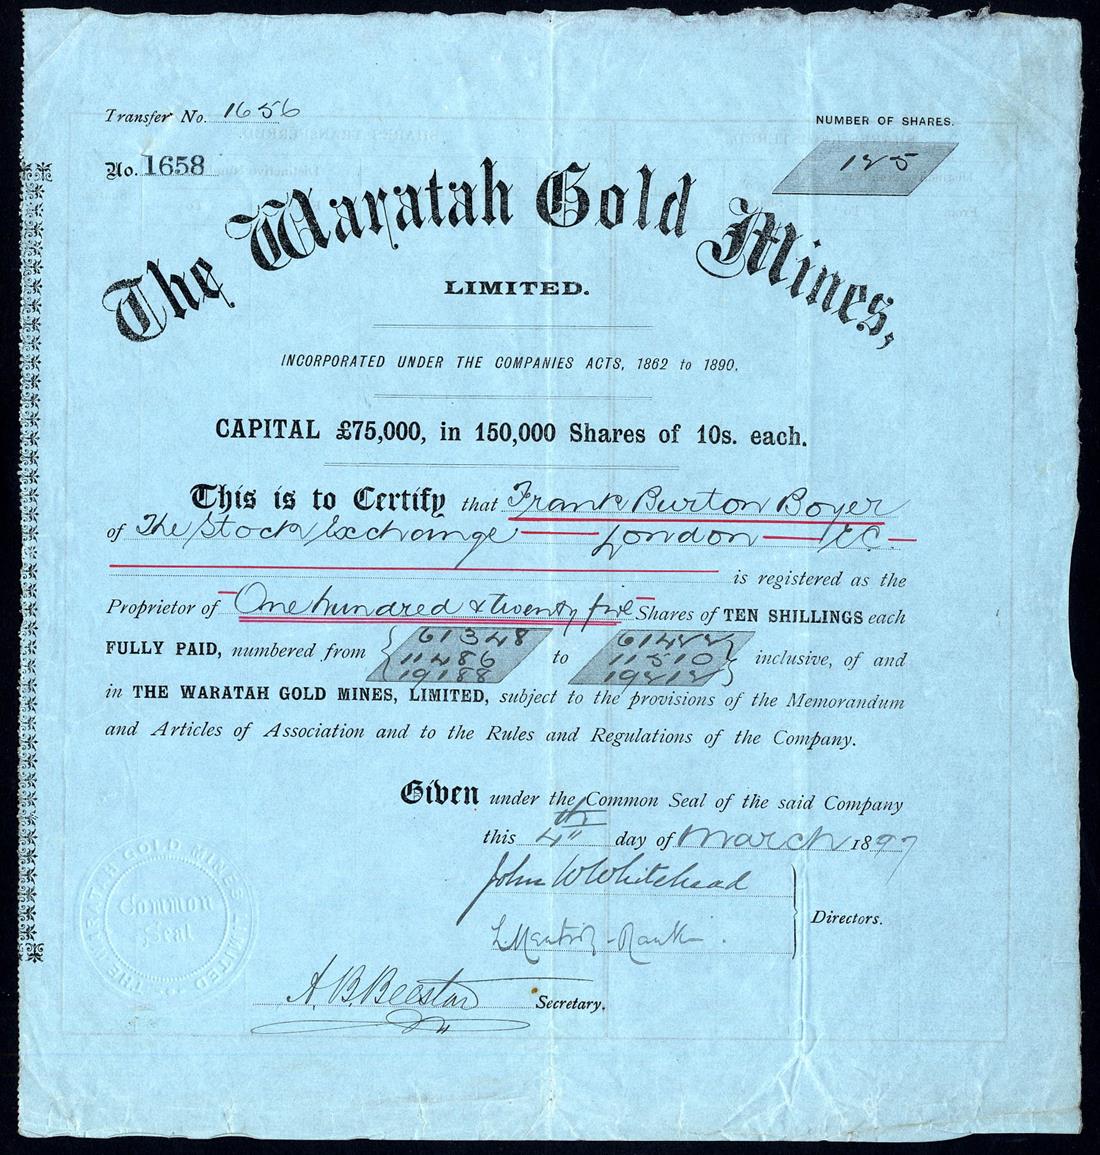 Transfer No. 1656
NUMBER OF SHARES.
No. 1658
125
The Waratah Gold Mines,
LIMITED.
INCORPORATED UNDER THE COMPANIES ACTS, 1862 to 1890.
CAPITAL £75,000, in 150,000 Shares of 10s. each.
This is to Certify that Frank Burton Boyer
of The Stock Exchange London E.C.
is registered as the
Proprietor of One hundred & twenty five Shares of TEN SHILLINGS each
FULLY PAID, numbered from { 61348 to 61422 } inclusive, of and
11486 11510
19188 19212
in THE WARATAH GOLD MINES, LIMITED, subject to the provisions of the Memorandum
and Articles of Association and to the Rules and Regulations of the Company.
Given under the Common Seal of the said Company
this 4th day of March 1897
John W Whitehead
Directors.
A. B. Beestar
Secretary.
THE WARATAH GOLD MINES LIMITED
Common
Seal